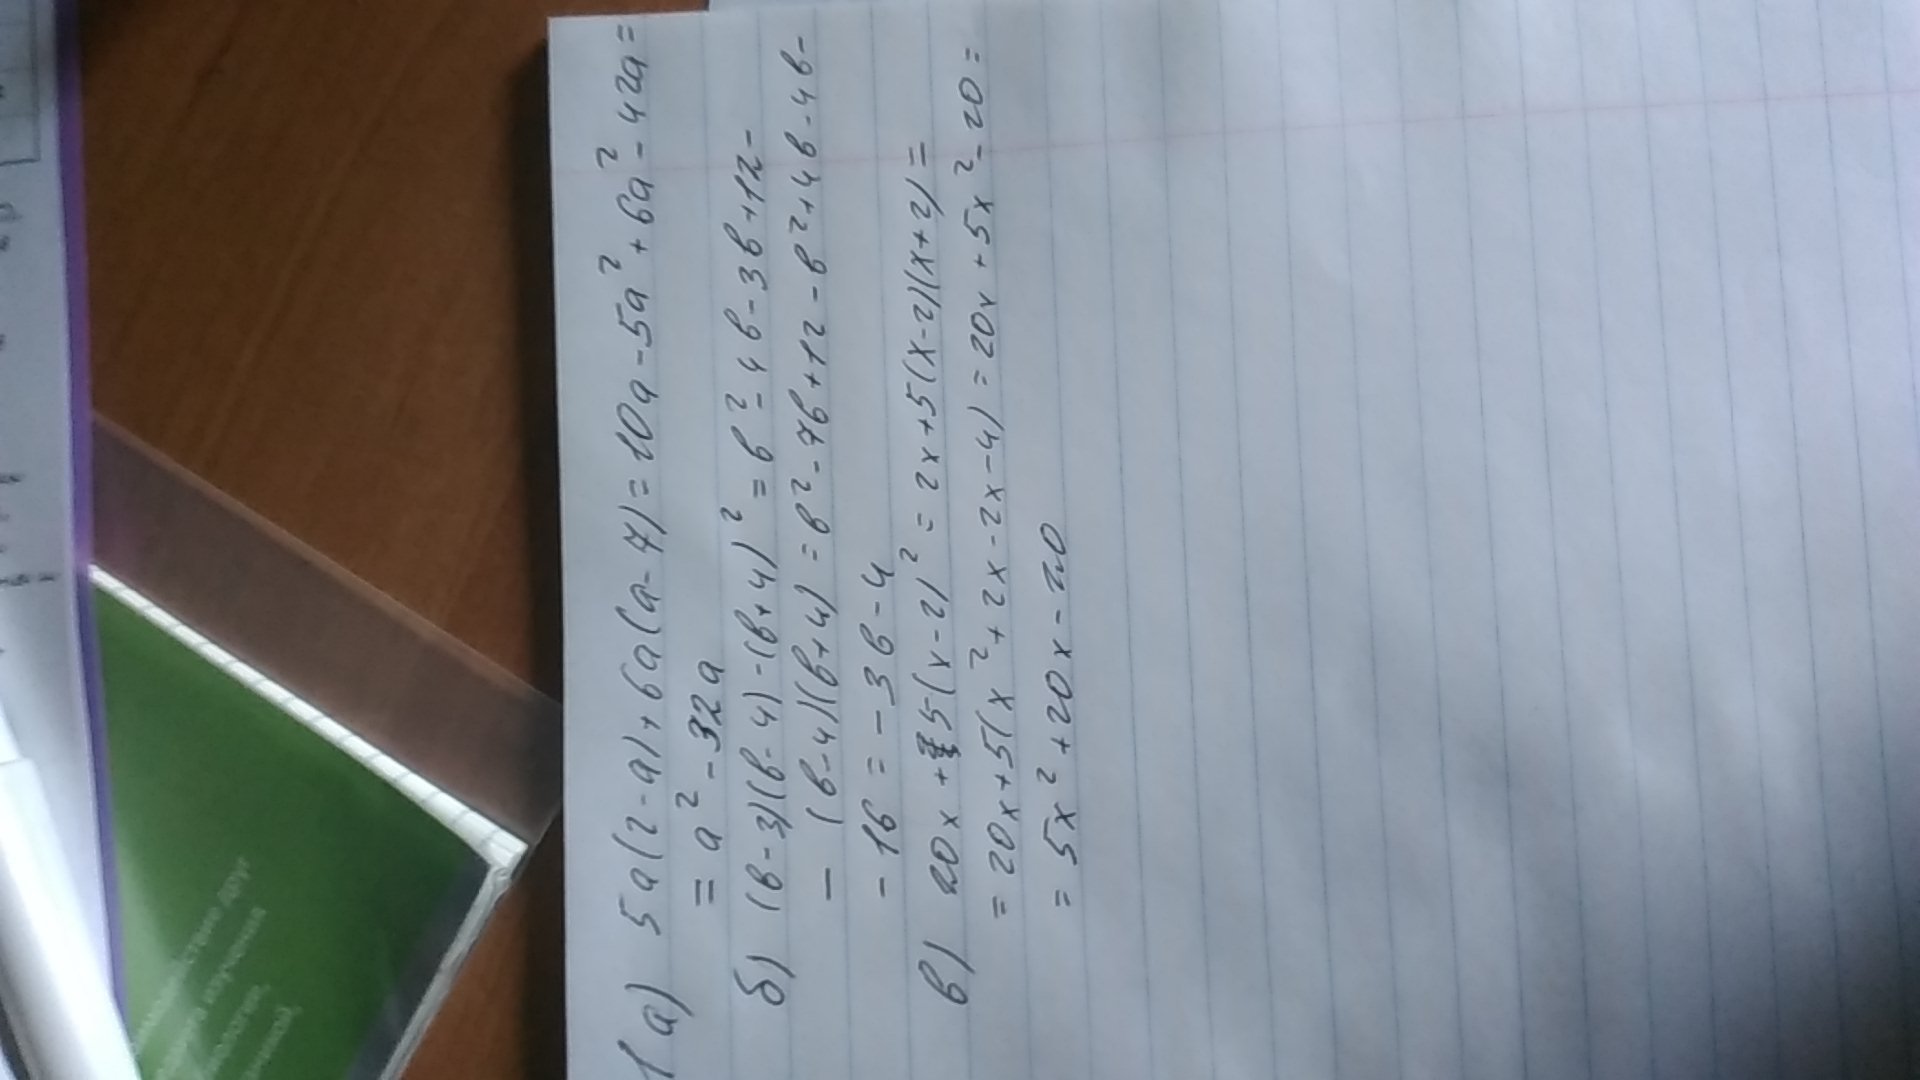 1 а) 5a(2-a)+6a(a-7)=10a-5a²+6a²-42a=
=a²-32a
б) (в-3)(в-4)-(в+4)²=в²-4в-3в+12-
-(в-4)(в+4)=в²-7в+12-в²+4в-4в-
-16=-3в-4
в) 20x+5(x-2)²=2x+5(x-2)(x+2)=
=20x+5(x²+2x-2x-4)=20x+5x²-20=
=5x²+20x-20